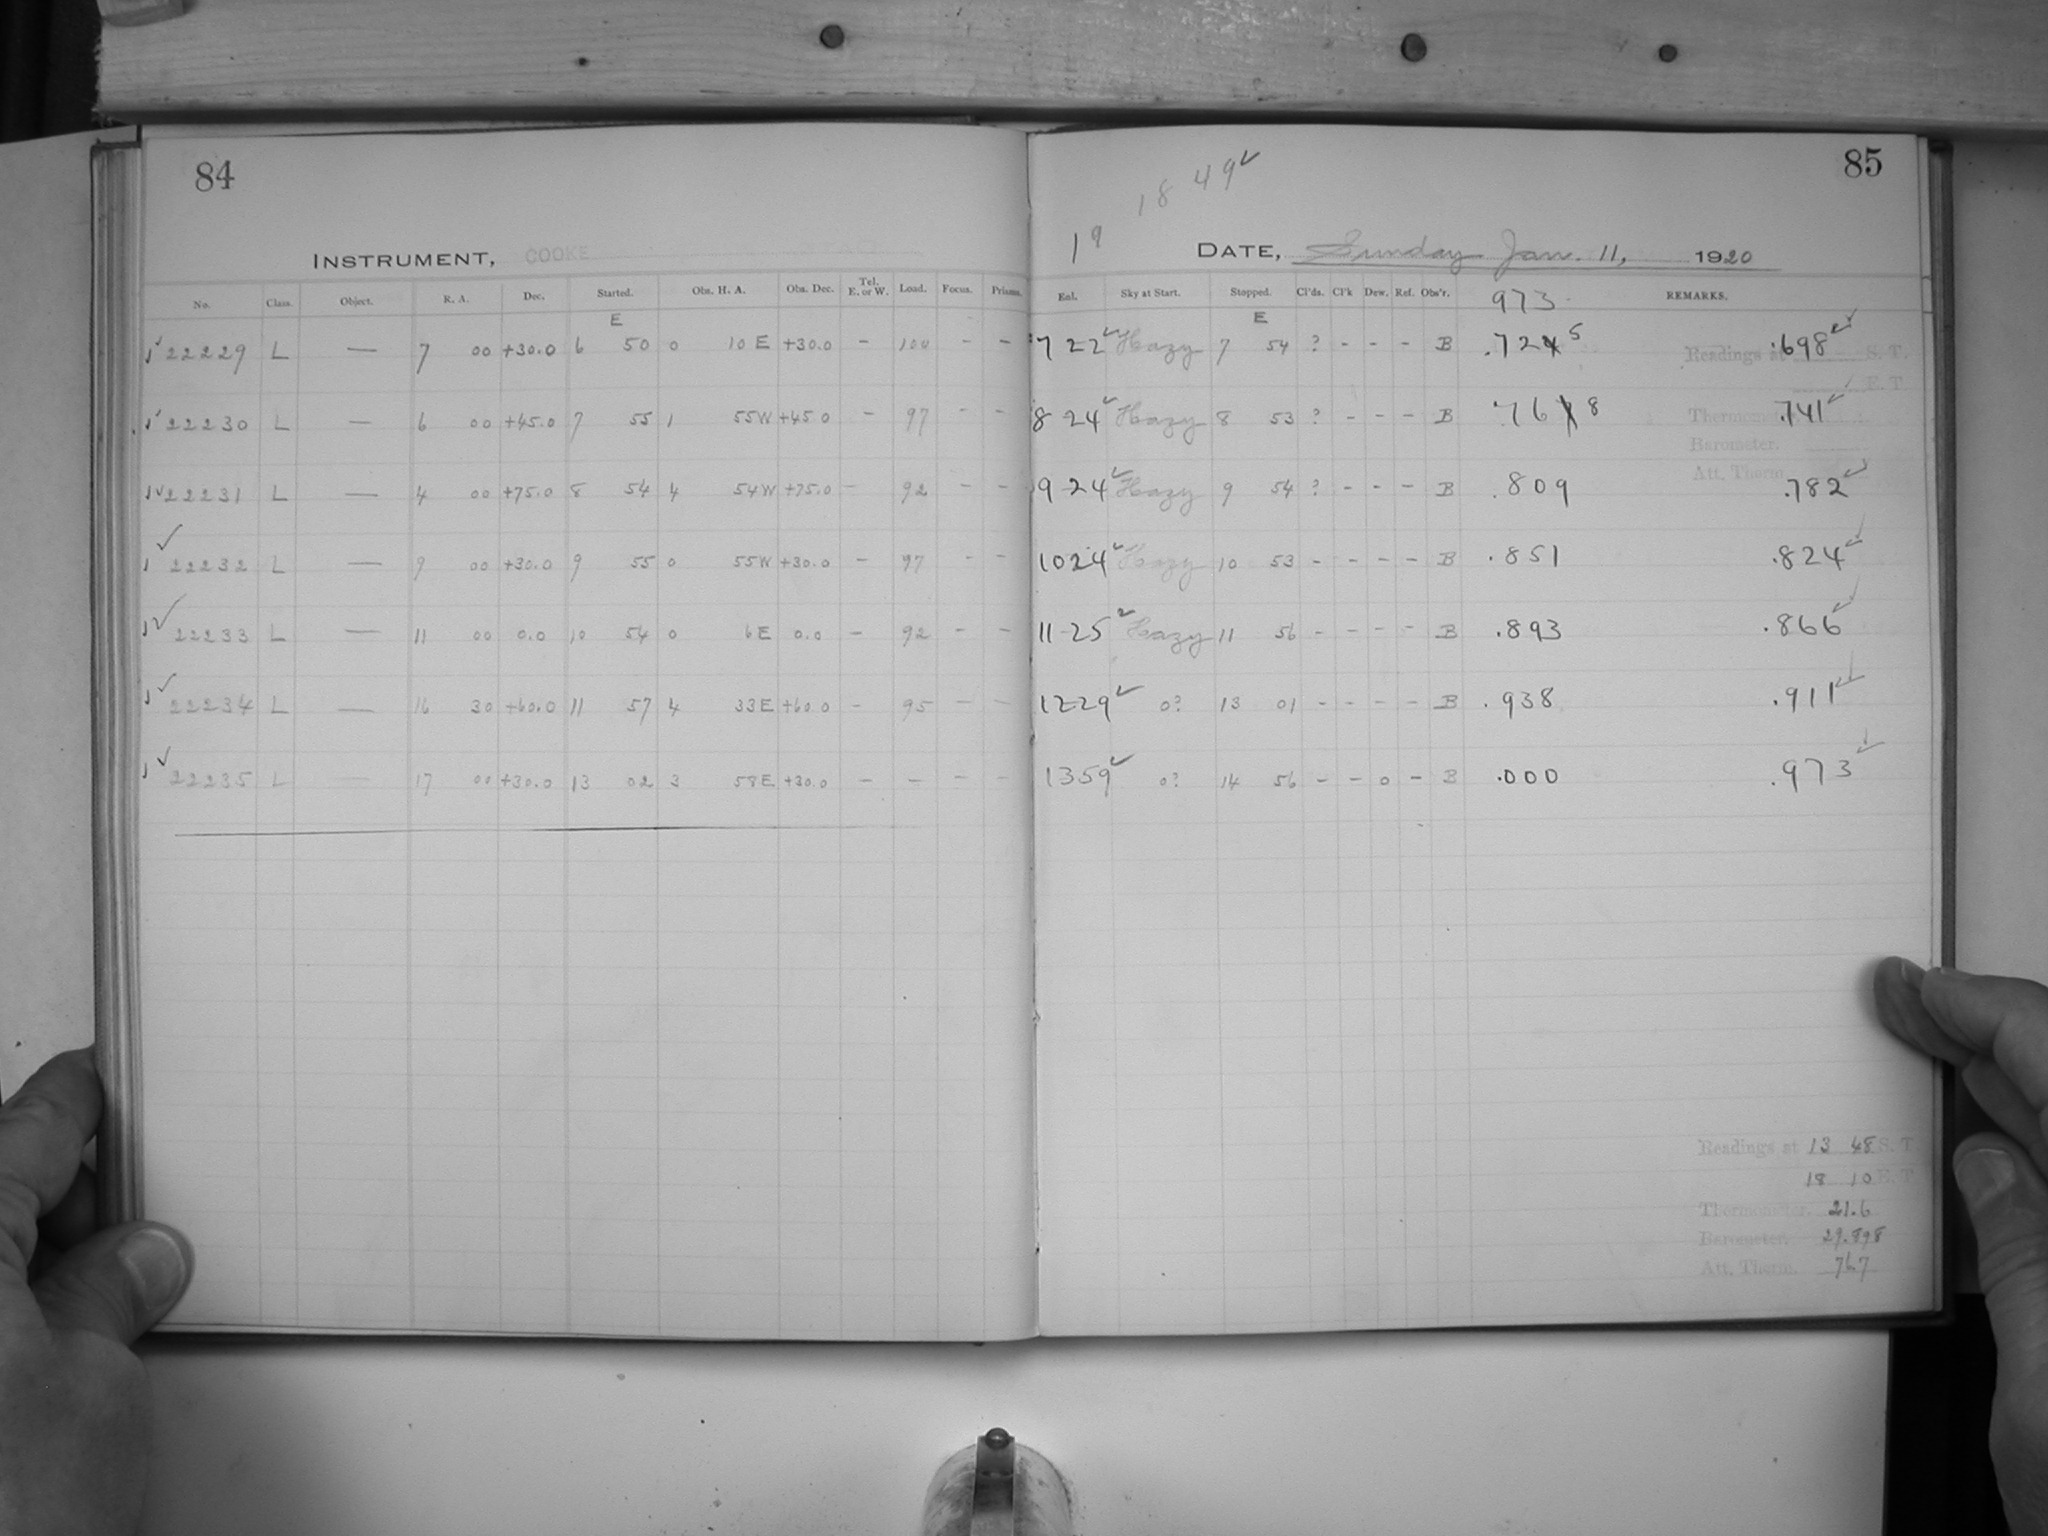 84
INSTRUMENT, COOKE
No. Class. Object. R. A. Dec. Started. Obs. H. A. Obs. Dec. Tel. E. or W. Load. Focus. Prisms.
E
22229 L — 7 00 +30.0 6 50 0 10 E +30.0 – 100 – –
22230 L — 6 00 +45.0 7 55 1 55 W +45.0 – 97 – –
22231 L — 4 00 +75.0 8 54 4 54 W +75.0 – 92 – –
22232 L — 9 00 +30.0 9 55 0 55 W +30.0 – 97 – –
22233 L — 11 00 0.0 10 54 0 6 E 0.0 – 92 – –
22234 L — 16 30 +60.0 11 57 4 33 E +60.0 – 95 – –
22235 L — 17 00 +30.0 13 02 3 58 E +30.0 – – – –
85
18 49
19
DATE, Sunday Jan. 11, 1920
Enl. Sky at Start. Stopped. Cl'ds. Cl'k Dew. Ref. Obs'r. 973 REMARKS.
E
7 22 Hazy 7 54 ? – – – B .724 5 .698
8 24 Hazy 8 53 ? – – – B .76 8 .741
9 24 Hazy 9 54 ? – – – B .809 .782
10 24 Hazy 10 53 – – – – B .851 .824
11 25 Hazy 11 56 – – – – B .893 .866
12 29 0? 13 01 – – – – B .938 .911
13 59 0? 14 56 – – 0 – B .000 .973
Readings at S. T.
E. T.
Thermometer.
Barometer.
Att. Therm.
Readings at 13 48 S. T.
18 10 E. T.
Thermometer. 21.6
Barometer. 29.898
Att. Therm. 76.7